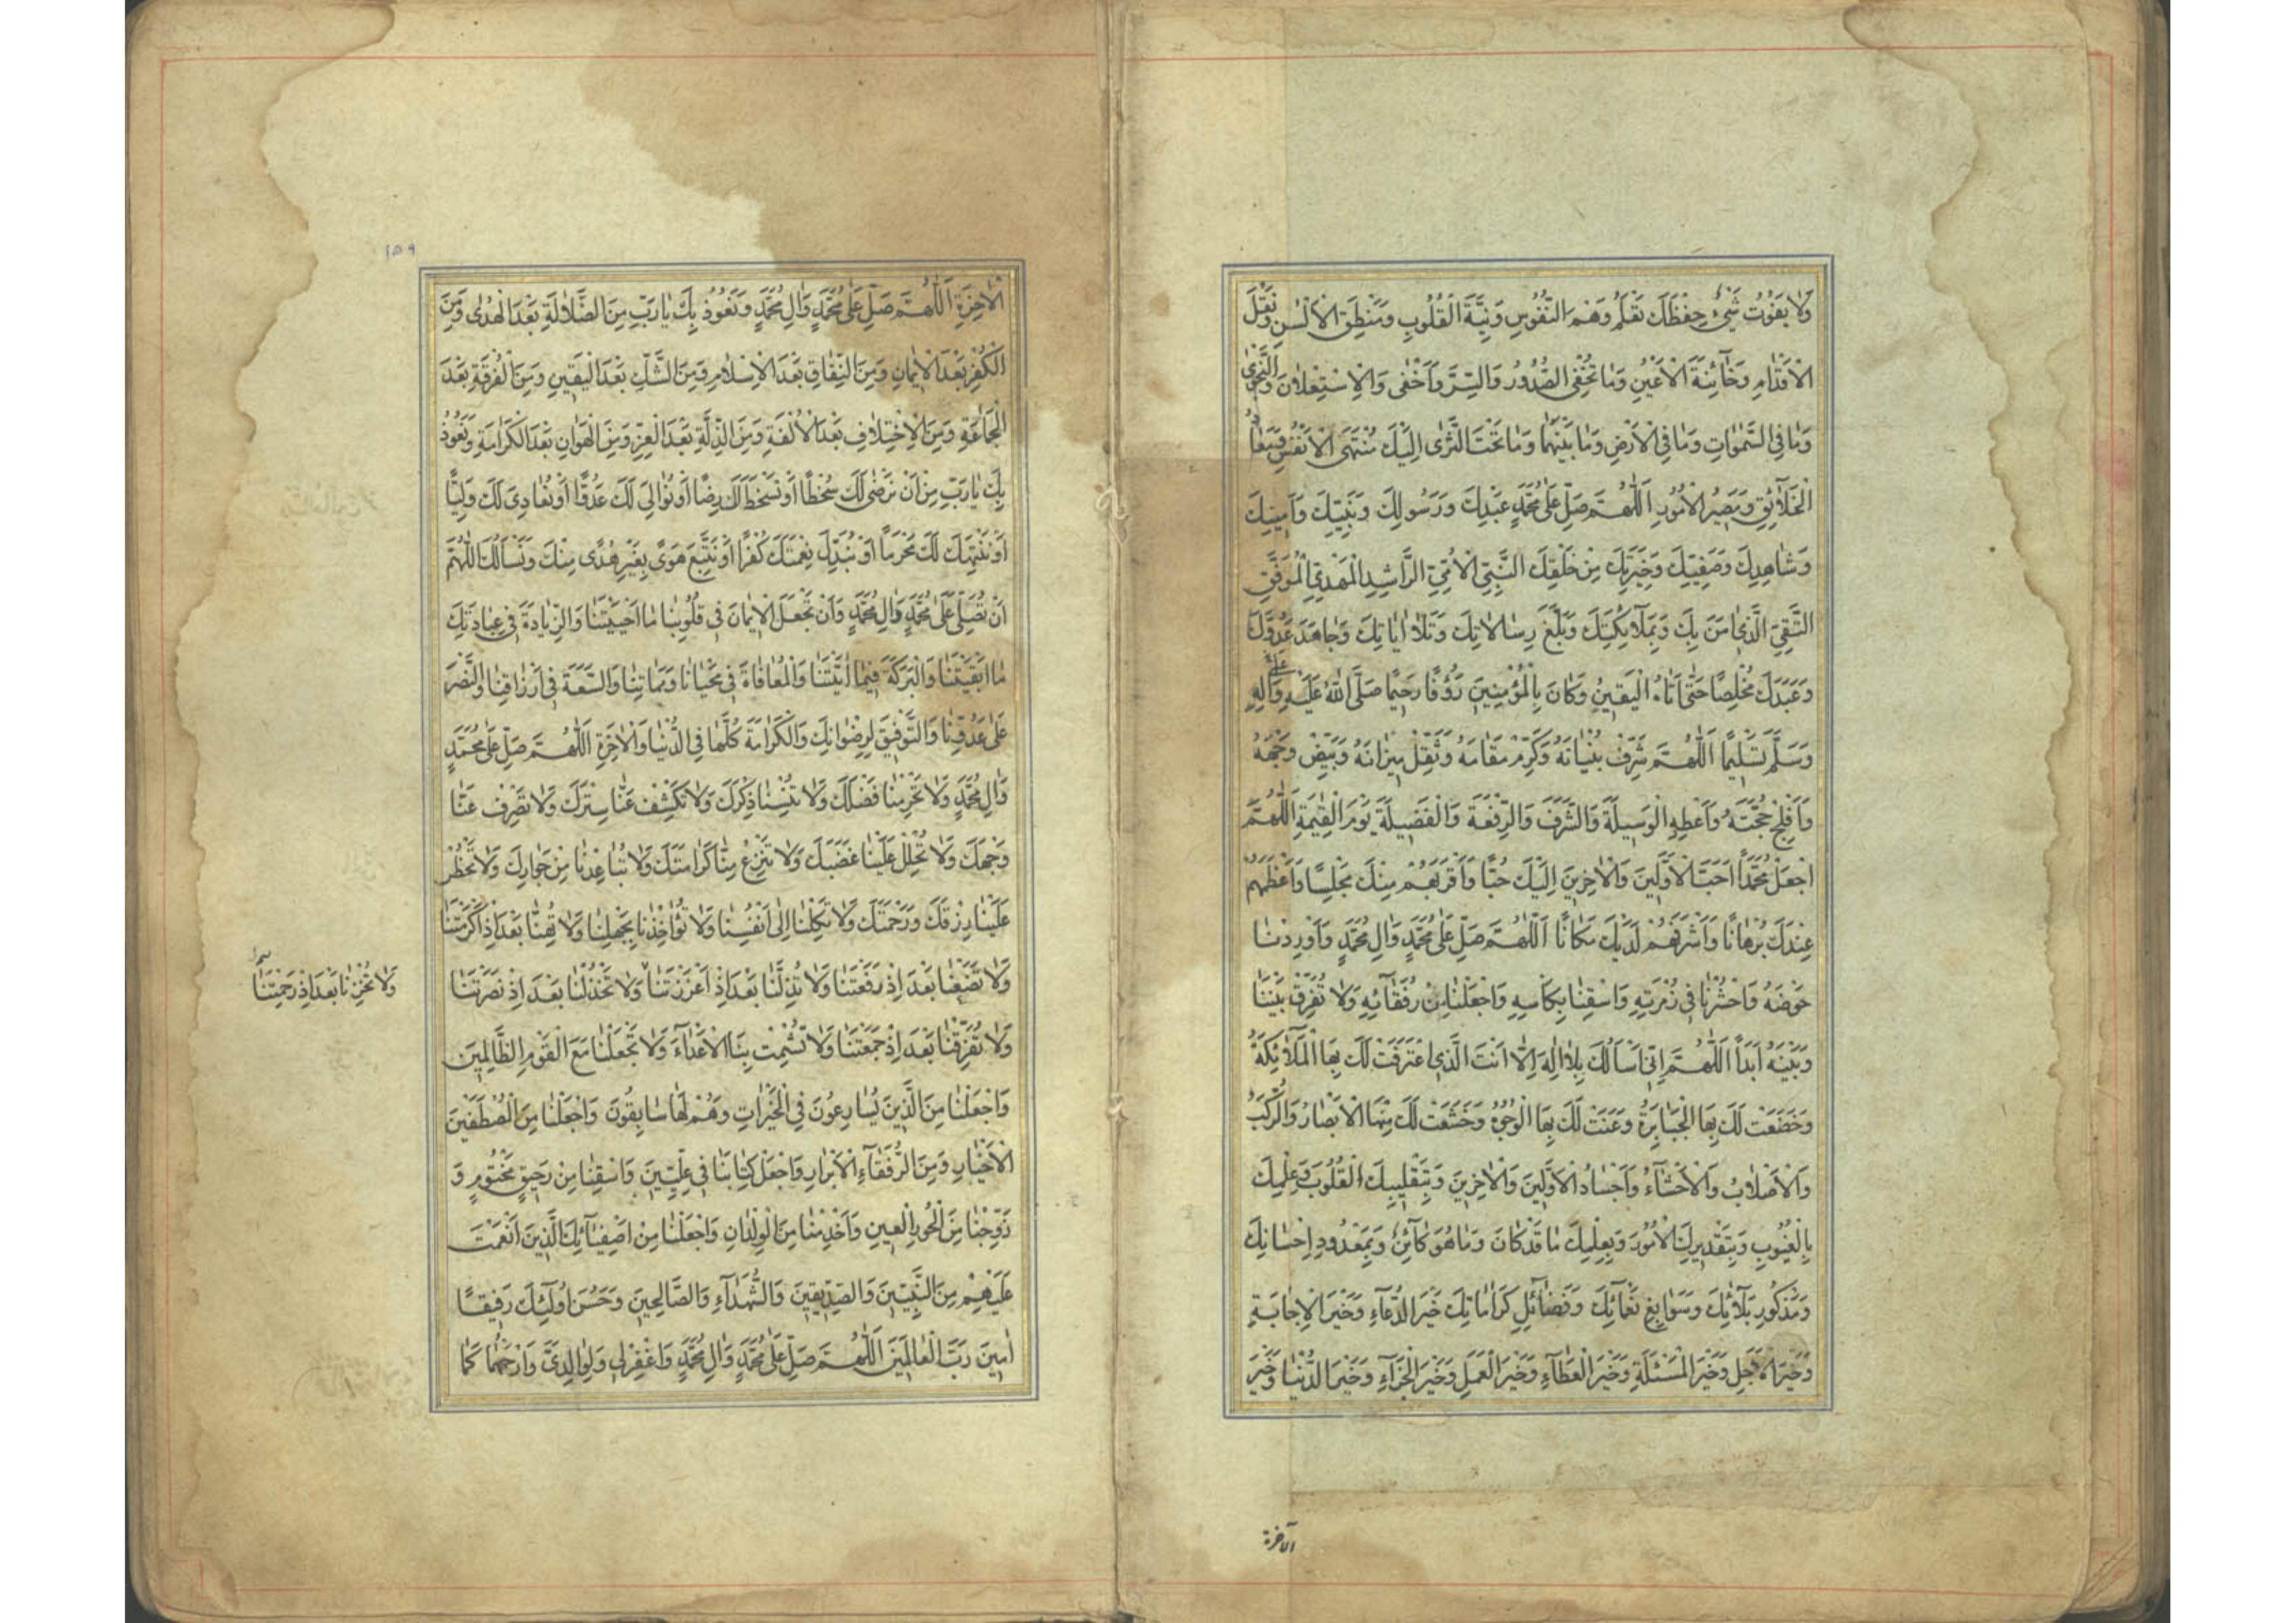 وَلَا يَفُوتُ شَيْءٌ حِفْظَكَ تَعْلَمُ وَهْمَ النُّفُوسِ وَنِيَّةَ الْقُلُوبِ وَمَنْطِقَ الْأَلْسُنِ وَنَقْلَ
الْأَقْدَامِ وَخَآئِنَةَ الْأَعْيُنِ وَمَا تُخْفِي الصُّدُورُ وَالسِّرَّ وَأَخْفَى وَالْاِسْتِعْلَانَ وَالنَّجْوَى
وَمَا فِي السَّمٰوَاتِ وَمَا فِي الْأَرْضِ وَمَا بَيْنَهُمَا وَمَا تَحْتَ الثَّرٰى اِلَيْكَ مُنْتَهَى الْأَنْفُسِ وَمَعَادُ
الْخَلَآئِقِ وَمَصِيرُ الْأُمُورِ اَللّٰهُمَّ صَلِّ عَلٰى مُحَمَّدٍ عَبْدِكَ وَرَسُولِكَ وَنَبِيِّكَ وَأَمِينِكَ
وَشَاهِدِكَ وَصَفِيِّكَ وَخِيَرَتِكَ مِنْ خَلْقِكَ النَّبِيِّ الْأُمِّيِّ الرَّاشِدِ الْمَهْدِيِّ الْمُوَفَّقِ
التَّقِيِّ الَّذِي اٰمَنَ بِكَ وَبِمَلَآئِكَتِكَ وَبَلَّغَ رِسَالَاتِكَ وَتَلَا اٰيَاتِكَ وَجَاهَدَ عَدُوَّكَ
وَعَبَدَكَ مُخْلِصًا حَتّٰى اَتَاهُ الْيَقِينُ وَكَانَ بِالْمُؤْمِنِينَ رَؤُفًا رَحِيمًا صَلَّى اللّٰهُ عَلَيْهِ وَاٰلِهِ
وَسَلَّمَ تَسْلِيمًا اَللّٰهُمَّ شَرِّفْ بُنْيَانَهُ وَكَرِّمْ مَقَامَهُ وَثَقِّلْ مِيزَانَهُ وَبَيِّضْ وَجْهَهُ
وَأَفْلِجْ حُجَّتَهُ وَأَعْطِهِ الْوَسِيلَةَ وَالشَّرَفَ وَالرِّفْعَةَ وَالْفَضِيلَةَ يَوْمَ الْقِيٰمَةِ اَللّٰهُمَّ
اجْعَلْ مُحَمَّدًا اَحَبَّ الْأَوَّلِينَ وَالْاٰخِرِينَ اِلَيْكَ حُبًّا وَأَقْرَبَهُمْ مِنْكَ مَجْلِسًا وَأَعْظَمَهُمْ
عِنْدَكَ بُرْهَانًا وَأَشْرَفَهُمْ لَدَيْكَ مَكَانًا اَللّٰهُمَّ صَلِّ عَلٰى مُحَمَّدٍ وَاٰلِ مُحَمَّدٍ وَأَوْرِدْنَا
حَوْضَهُ وَاحْشُرْنَا فِي زُمْرَتِهِ وَاسْقِنَا بِكَأْسِهِ وَاجْعَلْنَا مِنْ رُفَقَآئِهِ وَلَا تُفَرِّقْ بَيْنَنَا
وَبَيْنَهُ اَبَدًا اَللّٰهُمَّ اِنِّي اَسْاَلُكَ بِلَا اِلٰهَ اِلَّا اَنْتَ الَّذِي اعْتَرَفَتْ لَكَ بِهَا الْمَلَآئِكَةُ
وَخَضَعَتْ لَكَ بِهَا الْجَبَابِرَةُ وَعَنَتْ لَكَ بِهَا الْوُجُوهُ وَخَشَعَتْ لَكَ مِنْهَا الْأَبْصَارُ وَالرُّكَبُ
وَالْأَصْلَابُ وَالْأَحْشَآءُ وَأَجْسَادُ الْأَوَّلِينَ وَالْاٰخِرِينَ وَبِتَقْلِيبِكَ الْقُلُوبَ وَعِلْمِكَ
بِالْغُيُوبِ وَبِتَقْدِيرِكَ الْأُمُورَ وَبِعِلْمِكَ مَا قَدْ كَانَ وَمَا هُوَ كَآئِنٌ وَبِمَعْدُودِ اِحْسَانِكَ
وَمَذْكُورِ بَلَآئِكَ وَسَوَابِغِ نَعْمَآئِكَ وَفَضَآئِلِ كَرَامَاتِكَ خَيْرَ الدُّعَآءِ وَخَيْرَ الْاِجَابَةِ
وَخَيْرَ الْأَجَلِ وَخَيْرَ الْمَسْئَلَةِ وَخَيْرَ الْعَطَآءِ وَخَيْرَ الْعَمَلِ وَخَيْرَ الْجَزَآءِ وَخَيْرَ الدُّنْيَا وَخَيْرَ
الآخرة
١٥٩
الْاٰخِرَةِ اَللّٰهُمَّ صَلِّ عَلٰى مُحَمَّدٍ وَاٰلِ مُحَمَّدٍ وَنَعُوذُ بِكَ يَا رَبِّ مِنَ الضَّلَالَةِ بَعْدَ الْهُدٰى وَمِنَ
الْكُفْرِ بَعْدَ الْاِيمَانِ وَمِنَ النِّفَاقِ بَعْدَ الْاِسْلَامِ وَمِنَ الشَّكِّ بَعْدَ الْيَقِينِ وَمِنَ الْفُرْقَةِ بَعْدَ
الْجَمَاعَةِ وَمِنَ الْاِخْتِلَافِ بَعْدَ الْأُلْفَةِ وَمِنَ الذِّلَّةِ بَعْدَ الْعِزِّ وَمِنَ الْهَوَانِ بَعْدَ الْكَرَامَةِ وَنَعُوذُ
بِكَ يَا رَبِّ مِنْ اَنْ نَرْضٰى لَكَ سُخْطًا اَوْ نَسْخَطَ لَكَ رِضًا اَوْ نُوَالِيَ لَكَ عَدُوًّا اَوْ نُعَادِيَ لَكَ وَلِيًّا
اَوْ نَنْتَهِكَ لَكَ مَحْرَمًا اَوْ نُبَدِّلَ نِعْمَتَكَ كُفْرًا اَوْ نَتَّبِعَ هَوًى بِغَيْرِ هُدًى مِنْكَ وَنَسْاَلُكَ اللّٰهُمَّ
اَنْ تُصَلِّيَ عَلٰى مُحَمَّدٍ وَاٰلِ مُحَمَّدٍ وَاَنْ تَجْعَلَ الْاِيمَانَ فِي قُلُوبِنَا مَا اَحْيَيْتَنَا وَالزِّيَادَةَ فِي عِبَادَتِكَ
مَا اَبْقَيْتَنَا وَالْبَرَكَةَ فِيمَا اٰتَيْتَنَا وَالْمُعَافَاةَ فِي مَحْيَانَا وَمَمَاتِنَا وَالسَّعَةَ فِي اَرْزَاقِنَا وَالنَّصْرَ
عَلٰى عَدُوِّنَا وَالتَّوْفِيقَ لِرِضْوَانِكَ وَالْكَرَامَةَ كُلَّهَا فِي الدُّنْيَا وَالْاٰخِرَةِ اَللّٰهُمَّ صَلِّ عَلٰى مُحَمَّدٍ
وَاٰلِ مُحَمَّدٍ وَلَا تَحْرِمْنَا فَضْلَكَ وَلَا تُنْسِنَا ذِكْرَكَ وَلَا تَكْشِفْ عَنَّا سِتْرَكَ وَلَا تَصْرِفْ عَنَّا
وَجْهَكَ وَلَا تُحْلِلْ عَلَيْنَا غَضَبَكَ وَلَا تَنْزِعْ مِنَّا كَرَامَتَكَ وَلَا تُبَاعِدْنَا مِنْ جِوَارِكَ وَلَا تَحْظُرْ
عَلَيْنَا رِزْقَكَ وَرَحْمَتَكَ وَلَا تَكِلْنَا اِلٰى اَنْفُسِنَا وَلَا تُؤَاخِذْنَا بِجَهْلِنَا وَلَا تُهِنَّا بَعْدَ اِذْ اَكْرَمْتَنَا
وَلَا تَضَعْنَا بَعْدَ اِذْ رَفَعْتَنَا وَلَا تُذِلَّنَا بَعْدَ اِذْ اَعْزَزْتَنَا وَلَا تَخْذُلْنَا بَعْدَ اِذْ نَصَرْتَنَا
وَلَا تُحْزِنَّا بَعْدَ اِذْ رَحِمْتَنَا
وَلَا تُفَرِّقْنَا بَعْدَ اِذْ جَمَعْتَنَا وَلَا تُشْمِتْ بِنَا الْأَعْدَآءَ وَلَا تَجْعَلْنَا مَعَ الْقَوْمِ الظَّالِمِينَ
وَاجْعَلْنَا مِنَ الَّذِينَ يُسَارِعُونَ فِي الْخَيْرَاتِ وَهُمْ لَهَا سَابِقُونَ وَاجْعَلْنَا مِنَ الْمُصْطَفَيْنَ
الْأَخْيَارِ وَمِنَ الرُّفَقَآءِ الْأَبْرَارِ وَاجْعَلْ كِتَابَنَا فِي عِلِّيِّينَ وَاسْقِنَا مِنْ رَحِيقٍ مَخْتُومٍ وَ
زَوِّجْنَا مِنَ الْحُورِ الْعِينِ وَاَخْدِمْنَا مِنَ الْوِلْدَانِ وَاجْعَلْنَا مِنْ اَصْفِيَآئِكَ الَّذِينَ اَنْعَمْتَ
عَلَيْهِمْ مِنَ النَّبِيِّينَ وَالصِّدِّيقِينَ وَالشُّهَدَآءِ وَالصَّالِحِينَ وَحَسُنَ اُولٰٓئِكَ رَفِيقًا
اٰمِينَ رَبَّ الْعَالَمِينَ اَللّٰهُمَّ صَلِّ عَلٰى مُحَمَّدٍ وَاٰلِ مُحَمَّدٍ وَاغْفِرْ لِي وَلِوَالِدَيَّ وَارْحَمْهُمَا كَمَا